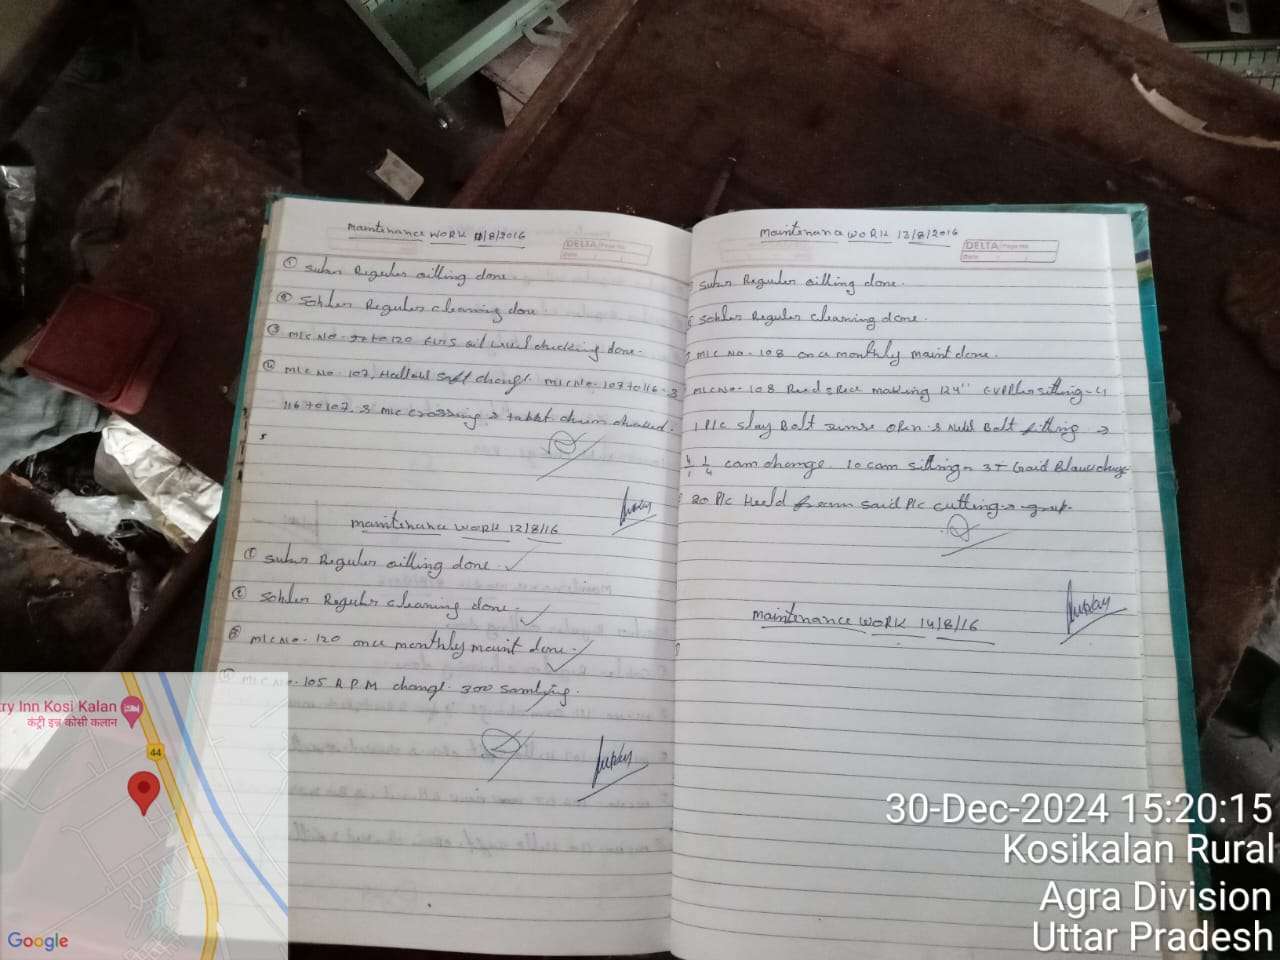 Maintenance WORK 11/8/2016
DELTA Page No.
Date
① Sulzer Reguler oilling done
② Sohler Reguler cleaning done
③ M/C No. 97 to 120 EVIS oil level checking done.
④ M/C No. 107, saft change. M/C No. 107 to 116 - 3
116 to 107. 3 M/C crossing
Maintenance WORK 12/8/16
① Sulzer Reguler oilling done.
② Sohler Reguler cleaning done.
③ M/C No. 120 once monthly maint done.
④ M/C No. 105 R.P.M change. 300
Maintenance WORK 13/8/2016
DELTA Page No.
Date
Sulzer Reguler oilling done.
Sohler Reguler cleaning done.
M/C No. 108 once monthly maint done.
M/C No. 108 Reed making 124"
1 P/C slay Bolt open Bolt fitting
cam change. 10 cam
20 P/C Heeld P/C cutting
Maintenance WORK 14/8/16
try Inn Kosi Kalan
कंट्री इन्न कोसी कलान
44
Google
30-Dec-2024 15:20:15
Kosikalan Rural
Agra Division
Uttar Pradesh